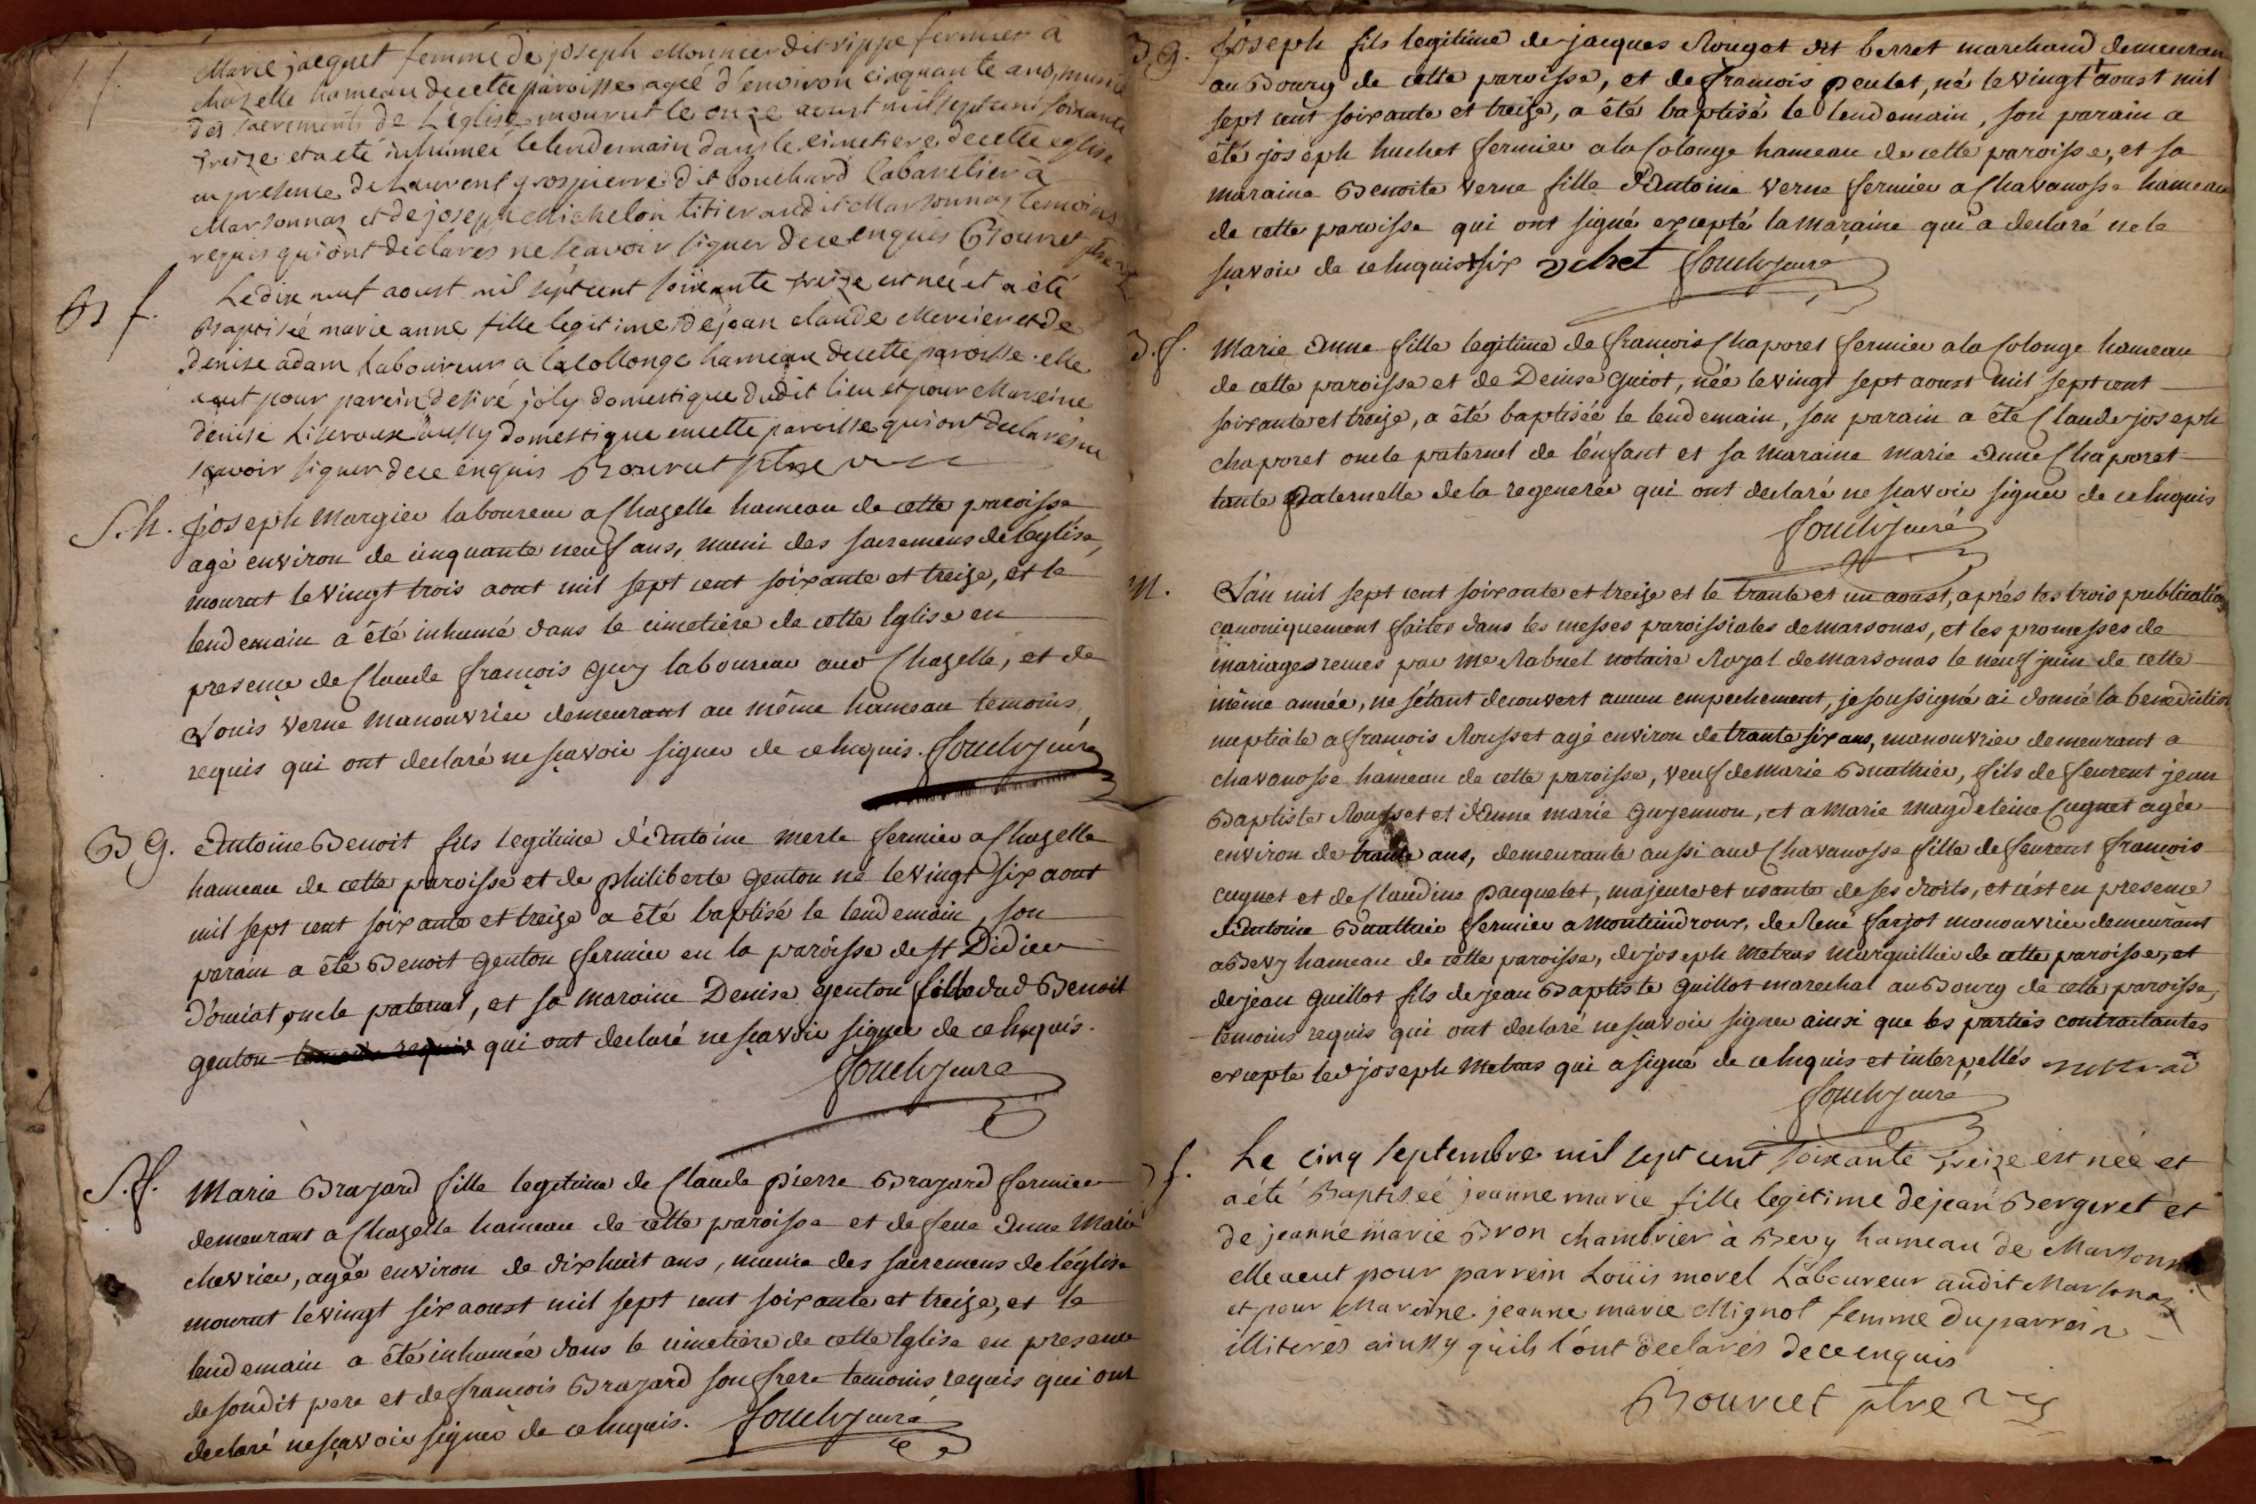 f.
Marie jacquet femme de joseph Monnier dit rippe fermier a
chazelle hameau de cette paroisse agée d'environ cinquante ans, munie
des sacrements de L'église mourut le onze aoust mil sept cens soixante
treize et a eté inhumée le lendemain dans le cimetiere de cette eglise
en presence de Laurent grospierre dit bouchard Cabaretier à
Marsonnas et de joseph Michelon titier audit Marsonnas temoins
requis qui ont declarés ne scavoir signer de ce enquis Bourcet ptre
B f. Le dix neuf aoust mil sept cent soixante treize est née et a été
Baptisée marie anne fille legitime de jean claude Mercier et de
denise adam Laboureur a la collonge hameau de cette paroisse. elle
a eut pour parein desiré joly domestique dudit lieu et pour Mareine
denise aussy domestique en cette paroisse qui ont declarés ne
scavoir signer de ce enquis Bourcet ptre
S. h. joseph Margier laboureur a Chazelle hameau de cette paroisse
agé environ de cinquante neuf ans, muni des sacremens de l'église,
mourut le vingt trois aout mil sept cent soixante et treize, et le
lendemain a été inhumé dans le cimetière de cette Eglise en
presence de Claude françois guy laboureur aud Chazelle, et de
Louis Verne manouvrier demeurant au même hameau temoins,
requis qui ont declaré ne sçavoir signer de ce enquis. curé
B g. Antoine Benoit fils legitime d'Antoine merle fermier a Chazelle
hameau de cette paroisse et de philiberte genton né le vingt six aout
mil sept cent soixante et treize a été baptisé le lendemain, son
parain a été Benoit genton fermier en la paroisse de st Didier
d'ouciat oncle paternel, et sa maraine Denise genton fille dud Benoit
genton temoins requis qui ont declaré ne sçavoir signer de ce enquis.
curé
S. f. Marie Brazard fille legitime de Claude pierre Brazard fermier
demeurant a Chazelle hameau de cette paroisse et de feue Anne Marie
chevrier, agée environ de dixhuit ans, munie des sacremens de l'église
mourut le vingt six aoust mil sept cent soixante et treize, et le
lendemain a été inhumée dans le cimetière de cette Eglise en presence
de sondit pere et de françois Brazard son frere temoins requis qui ont
declaré ne sçavoir signer de ce enquis. curé
B. g. joseph fils legitime de jacques Rougot dit berret marchand demeurant
au Bourg de cette paroisse, et de françois peulet, né le vingt aoust mil
sept cent soixante et treize, a été baptisé le lendemain, son parain a
été joseph huchet fermier a la Colonge hameau de cette paroisse, et sa
maraine Benoite Verne fille d'Antoine Verne fermier a Chavanosse hameau
de cette paroisse qui ont signé excepté la maraine qui a declaré ne le
sçavoir de ce enquis six uchet curé
B. f. Marie Anne fille legitime de françois Chaporet fermier a la Colonge hameau
de cette paroisse et de Denise guiot, née le vingt sept aoust mil sept cent
soixante et treize, a été baptisée le lendemain, son parain a été Claude joseph
chaporet oncle paternel de l'enfant et sa maraine marie Anne Chaporet
tante paternelle de la regenerée qui ont declaré ne sçavoir signer de ce enquis
curé
M. L'an mil sept cent soixante et treize et le trante et un aoust, après les trois publications
canoniquement faites dans les messes paroissiales de marsonas, et les promesses de
mariages reçues par me Rabuel notaire Royal de marsonas le neuf juin de cette
même année, ne s'étant decouvert aucun empechement, je soussigné ai donné la benediction
nuptiale a françois Rousset agé environ de trante six ans, manouvrier demeurant a
chavanosse hameau de cette paroisse, veuf de marie Buathier, fils de feu jean
Baptiste Rousset et d'Anne marie guyennon, et a Marie magdeleine Cugnet agée
environ de trante ans, demeurante aussi aud Chavanosse fille de feu françois
cugnet et de Claudine pacquelet, majeure et usante de ses droits, et c'est en presence
d'Antoine Buathier fermier a montaindroux, de René farjot manouvrier demeurant
a Bevy hameau de cette paroisse, de joseph metras marguillier de cette paroisse, et
de jean guillot fils de jean Baptiste guillot marechal au Bourg de cette paroisse,
temoins requis qui ont declaré ne sçavoir signer ainsi que les parties contractantes
excepté led joseph metras qui a signé de ce enquis et interpellés metras
curé
f. Le cinq septembre mil sept cent soixante treize est née et
a été Baptisée jeanne marie fille legitime de jean Bergeret et
de jeanne marie Bron chambrier à Bevy hameau de Marsonnas
elle a eut pour parrein Loüis morel Laboureur audit Marsonas
et pour Mareine jeanne marie Mignot femme du parrein
illiterés ainssy qu'ils l'ont declarés de ce enquis
Bourcet ptre